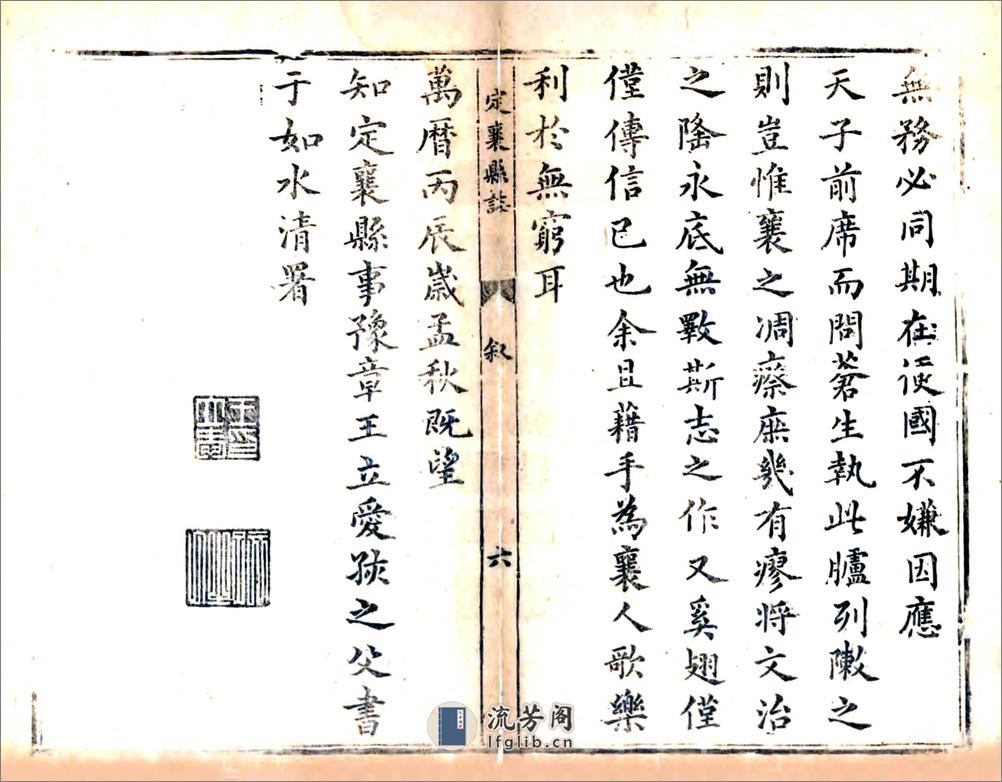 無務必同期在便國不嫌因應
天子前席而問蒼生執此臚列敶之
則豈惟襄之凋瘵庶幾有瘳將文治
之隆永底無斁斯志之作又奚翅僅
僅傳信已也余且藉手為襄人歌樂
利於無窮耳
定襄縣誌
叙
六
萬曆丙辰歲孟秋既望
知定襄縣事豫章王立愛孩之父書
于如水清署
流芳阁
lfglib.cn